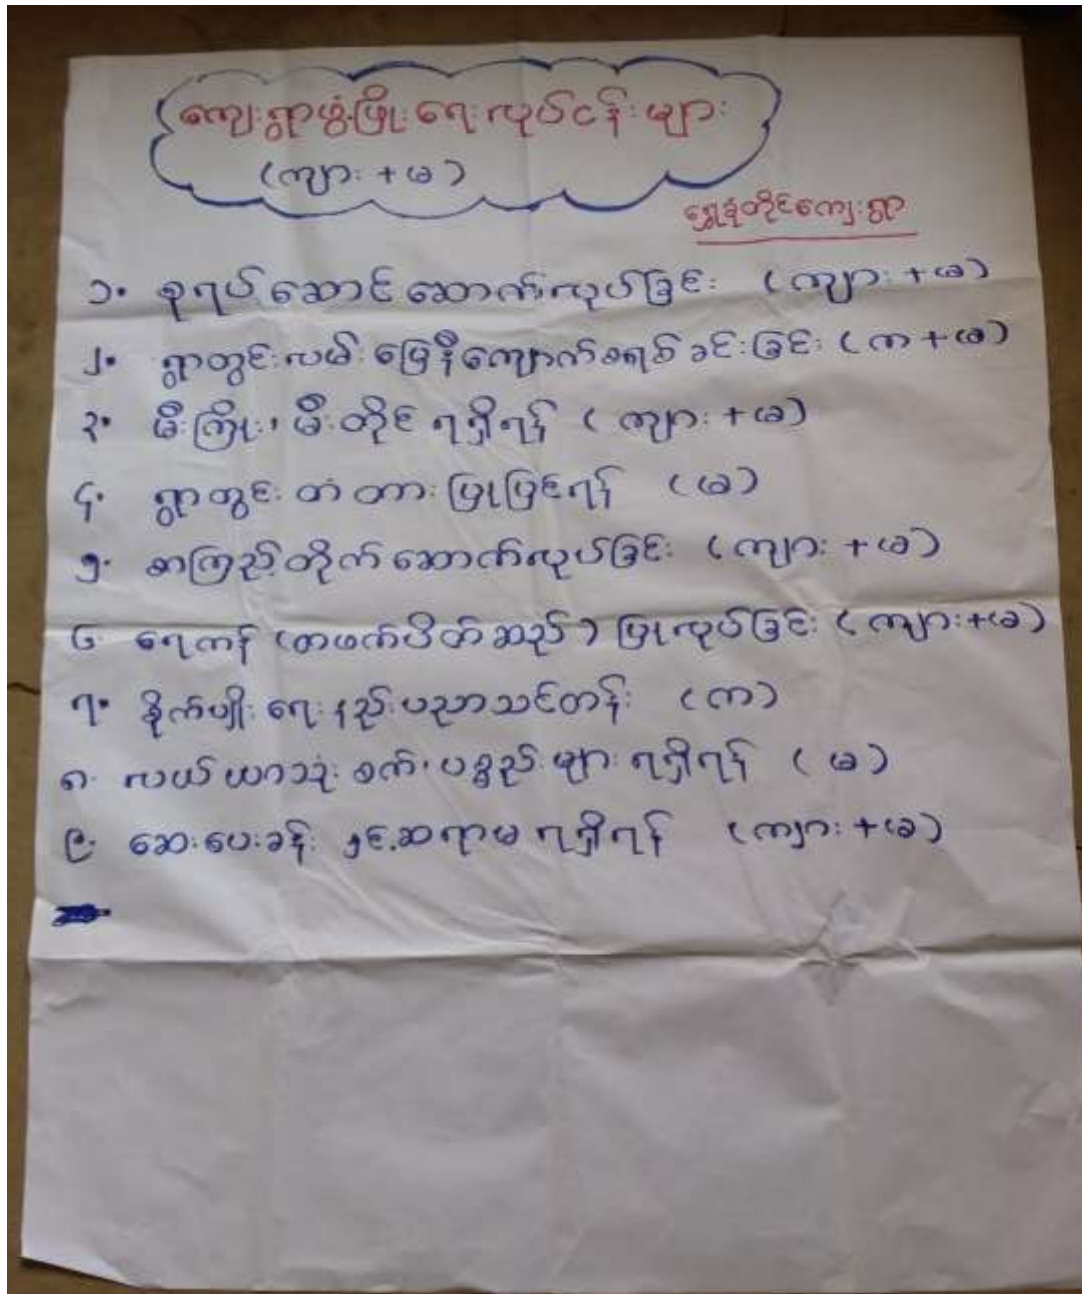 ကျေးရွာဖွံ့ဖြိုးရေးလုပ်ငန်းများ
(ကျား + မ)
ရွှေနံ့တိုင်ကျေးရွာ
၁။ စုရပ်ဆောင်ဆောက်လုပ်ခြင်း (ကျား + မ)
၂။ ရွာတွင်းလမ်းမြေနီကျောက်စရစ်ခင်းခြင်း (က + မ)
၃။ မီးကြိုး၊ မီးတိုင်ရရှိရန် (ကျား + မ)
၄။ ရွာတွင်းတံတားပြုပြင်ရန် (မ)
၅။ စာကြည့်တိုက်ဆောက်လုပ်ခြင်း (ကျား + မ)
၆။ ရေကန် (တဖက်ပိတ်ဆည်) ပြုလုပ်ခြင်း (ကျား + မ)
၇။ စိုက်ပျိုးရေးနည်းပညာသင်တန်း (က)
၈။ လယ်ယာသုံးစက်ပစ္စည်းများရရှိရန် (မ)
၉။ ဆေးပေးခန်းနှင့်ဆရာမရရှိရန် (ကျား + မ)